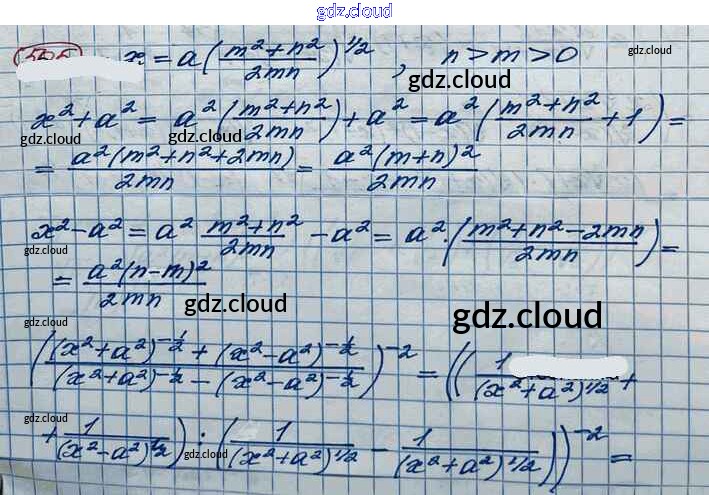 gdz.cloud
555 x = a(\frac{m²+n²}{2mn})^{1/2}, n>m>0 gdz.cloud
gdz.cloud
x²+a² = a²(\frac{m²+n²}{2mn})+a² = a²(\frac{m²+n²}{2mn}+1) =
gdz.cloud gdz.cloud gdz.cloud
= \frac{a²(m²+n²+2mn)}{2mn} = \frac{a²(m+n)²}{2mn}
x²-a² = a² \frac{m²+n²}{2mn} -a² = a²·(\frac{m²+n²-2mn}{2mn}) =
gdz.cloud gdz.cloud
= \frac{a²(n-m)²}{2mn}
gdz.cloud gdz.cloud
gdz.cloud
(\frac{(x²+a²)^{-\frac{1}{2}} + (x²-a²)^{-\frac{1}{2}}}{(x²+a²)^{-\frac{1}{2}} - (x²-a²)^{-\frac{1}{2}}})^{-2} = ((\frac{1}{(x²+a²)^{1/2}} +
gdz.cloud
+ \frac{1}{(x²-a²)^{1/2}}) : (\frac{1}{(x²+a²)^{1/2}} - \frac{1}{(x²+a²)^{1/2}}))^{-2} =
gdz.cloud gdz.cloud gdz.cloud